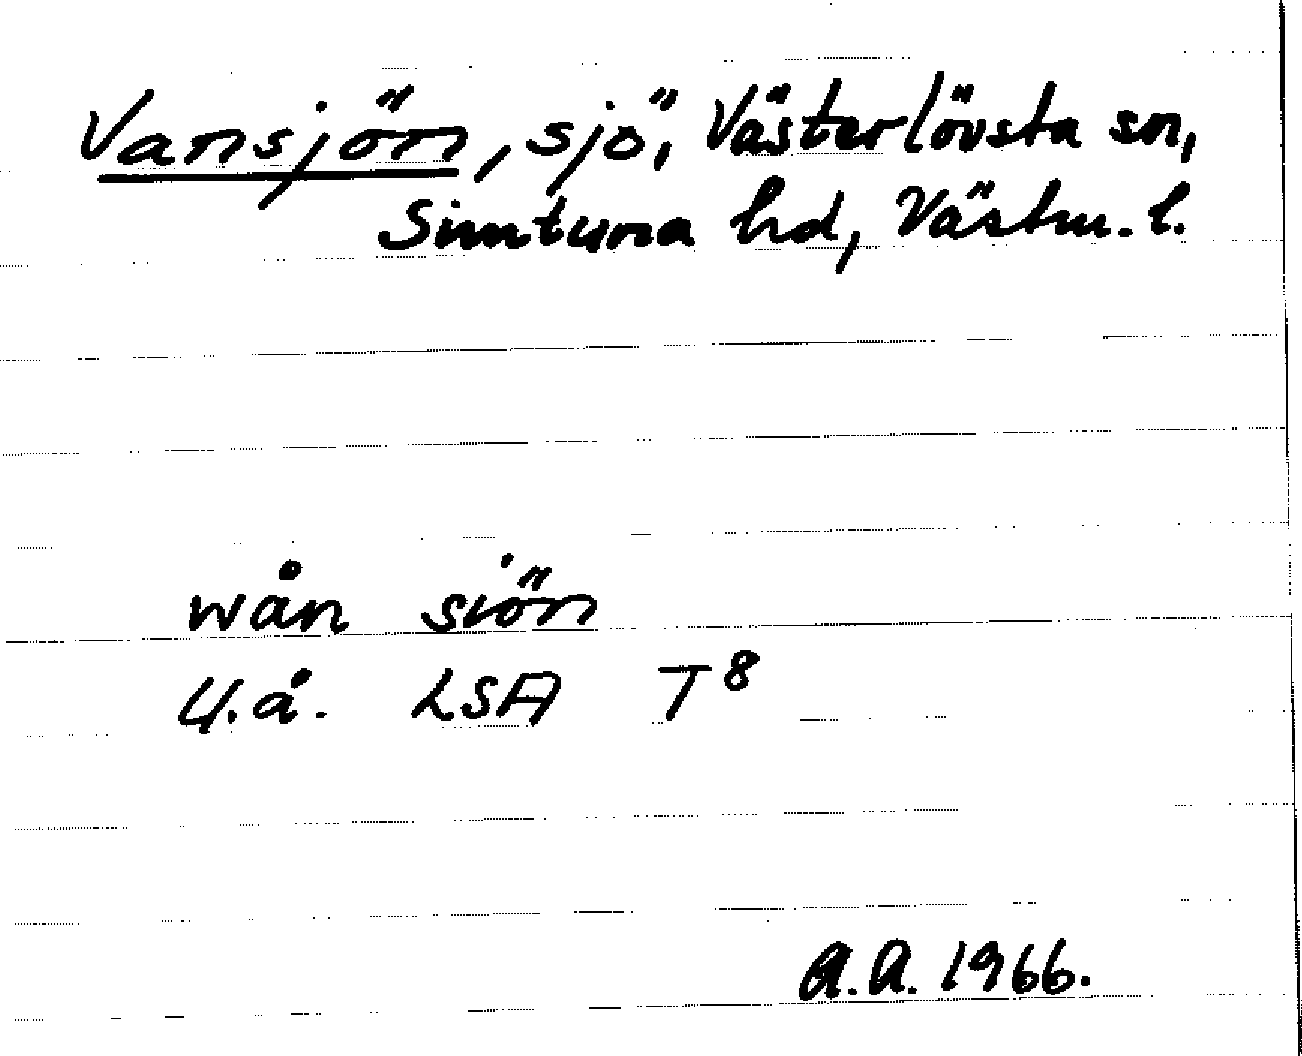 Vansjön, sjö, Västerlövsta sn,
Simtuna hd, Västm. l.
wån siön
U.å. LSA T8
A.A. 1966.